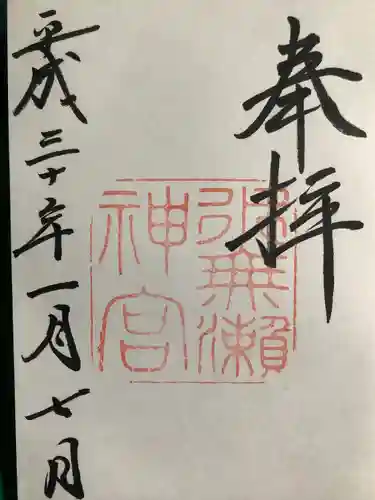 奉拝
水無瀨
神宮
平成三十年一月七日